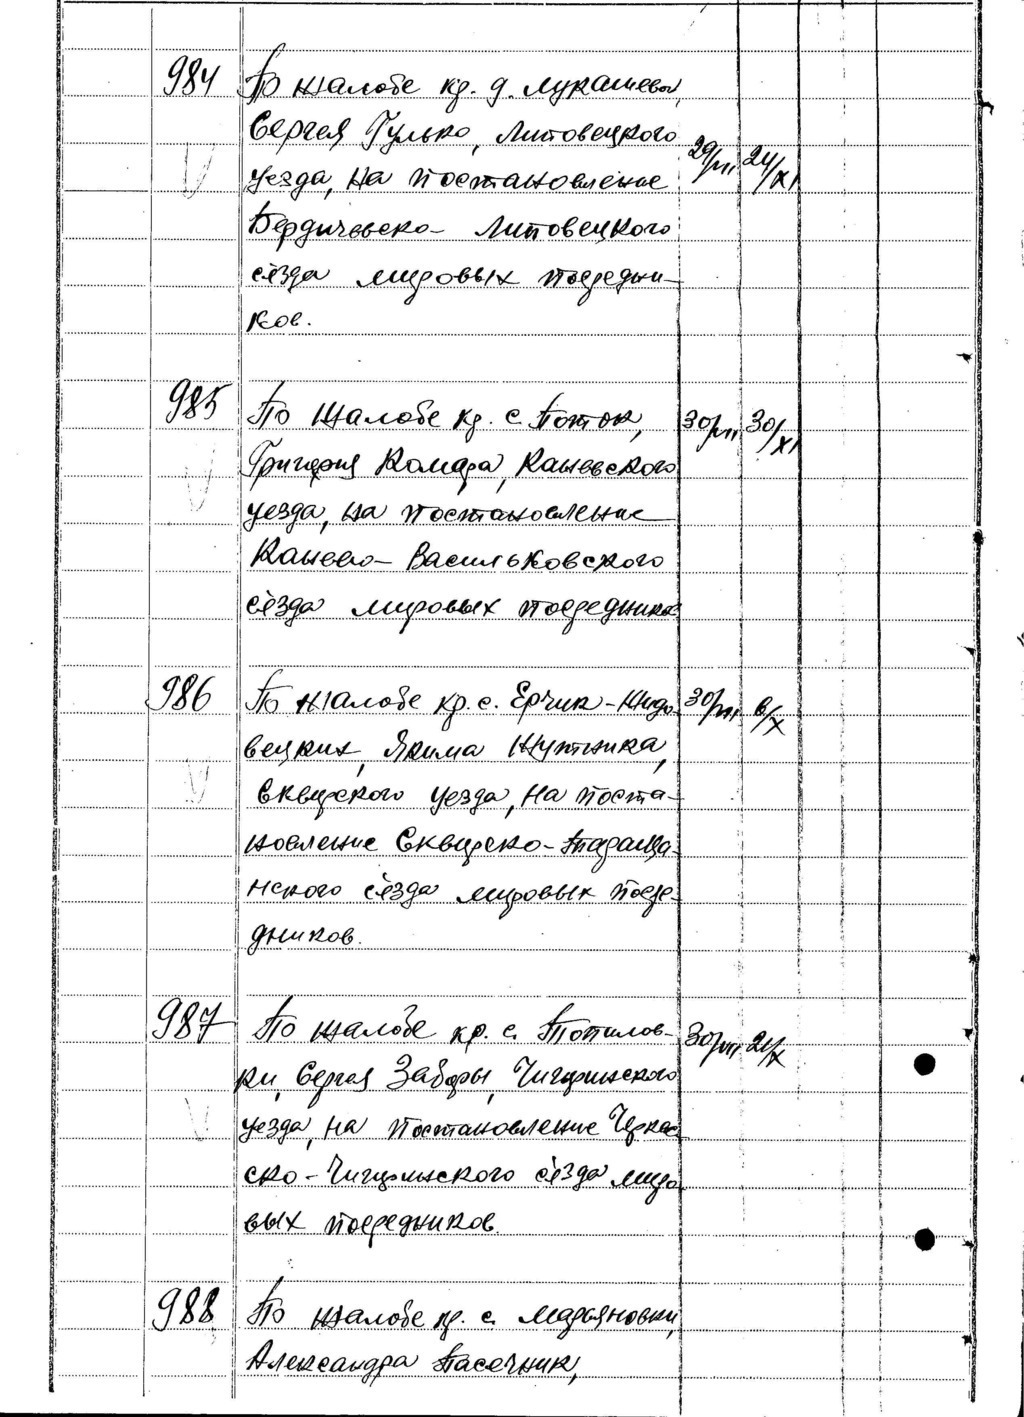 984 По жалобе кр. д. Лукашевки,
Сергея Гулько, Липовецкого
уезда, на постановление 29/VII 24/XI
Бердичевско- Липовецкого
съезда мировых посредни-
ков.
985 По жалобе кр. с. Поток, 30/VII 30/XI
Григория Комара, Каневского
уезда, на постановление
Канево- Васильковского
съезда мировых посредников
986 По жалобе кр. с. Ерчик- 30/VII 6/X
вецких, Якима
Сквирского уезда, на поста-
новление Сквирско-Таращан-
нского съезда мировых посре-
дников.
987 По жалобе кр. с. Топилов- 30/VII 21/X
ки, Сергея Заборы, Чигиринского
уезда, на постановление Черкас-
ско-Чигиринского съезда миро
вых посредников.
988 По жалобе кр. с. Марьяновки,
Александра Пасечник,